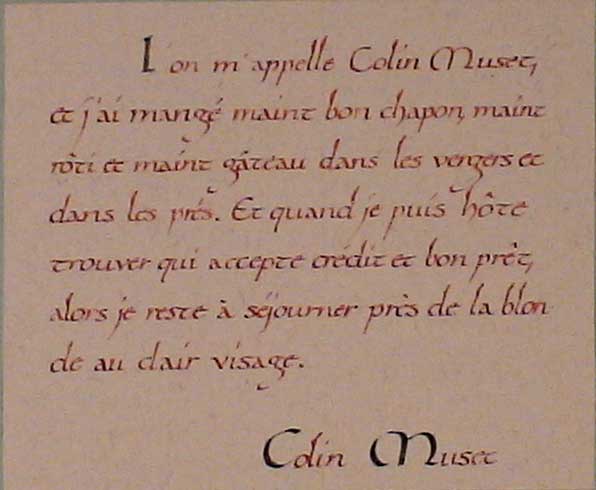 L'on m'appelle Colin Muset,
et j'ai mangé maint bon chapon, maint
rôti et maint gâteau dans les vergers et
dans les prés. Et quand je puis hôte
trouver qui accepte crédit et bon prêt,
alors je reste à séjourner près de la blon
de au clair visage.
Colin Muset